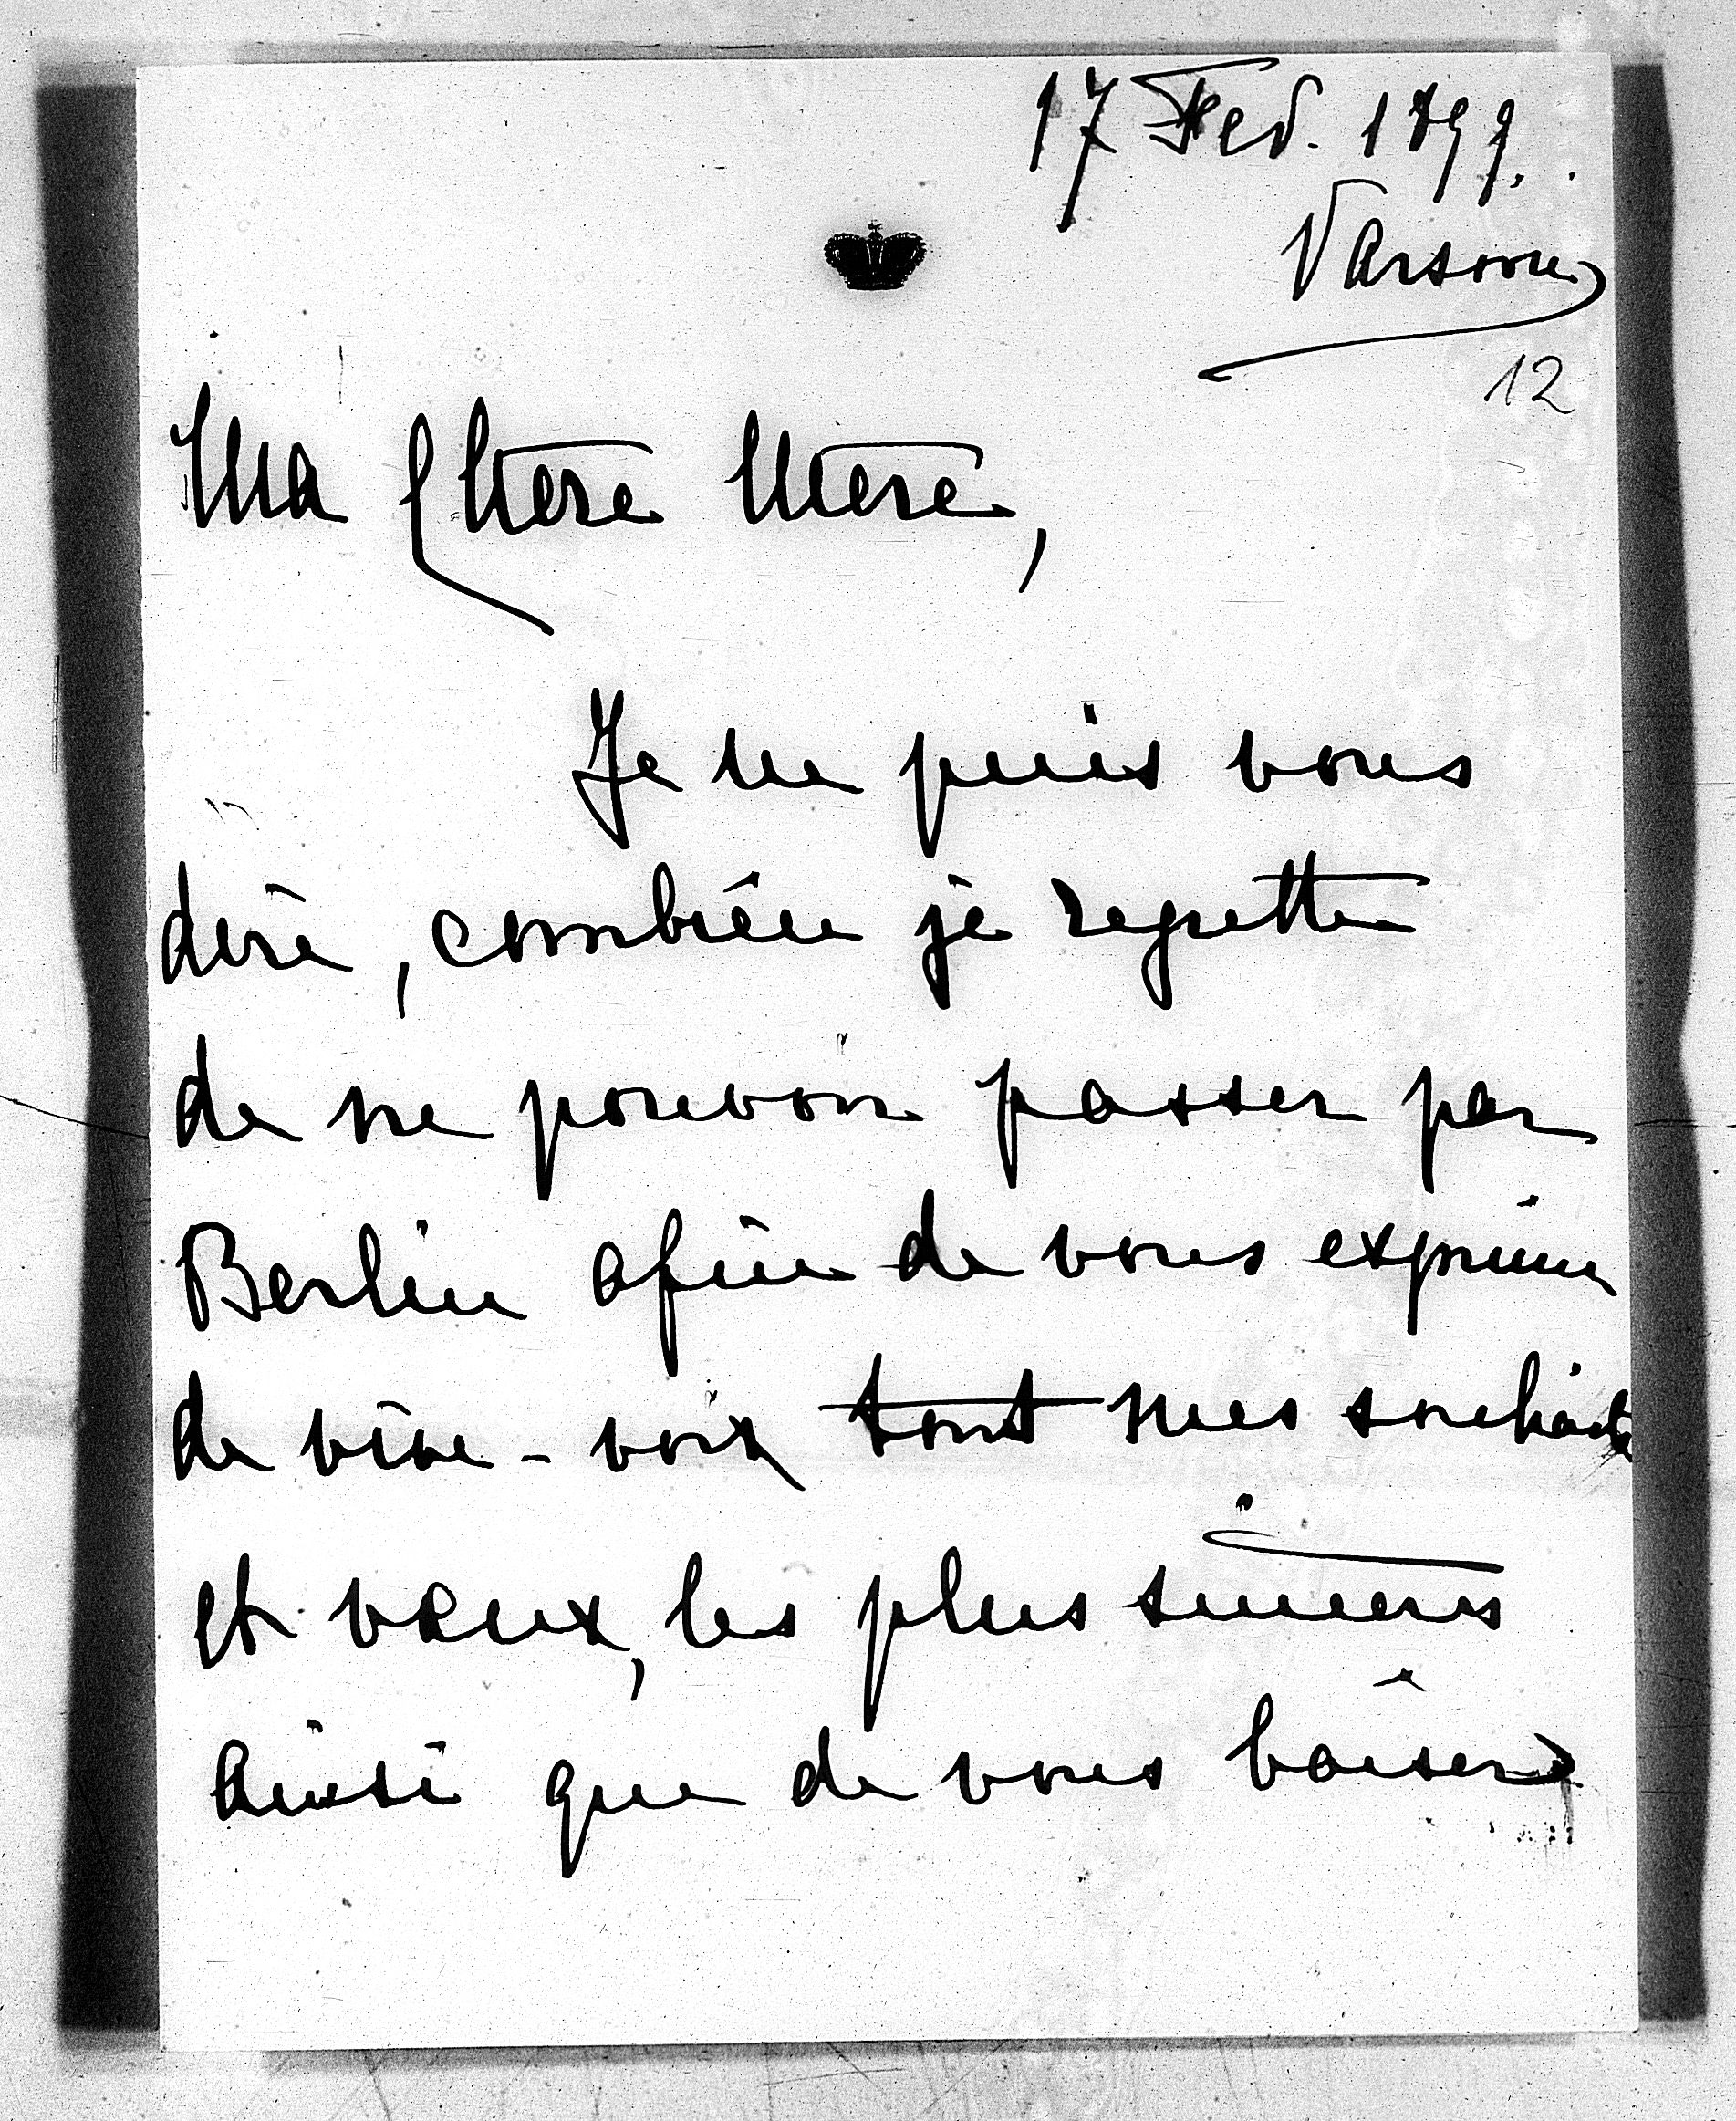 17 Fev. 1899.
Varsovie
12
Ma Chère Mère,
Je ne puis vous
dire, combien je regrette
de ne pouvoir passer par
Berlin afin de vous exprimer
de vive-voix tout mes souhaits
et vœux, les plus sincères
ainsi que de vous baiser